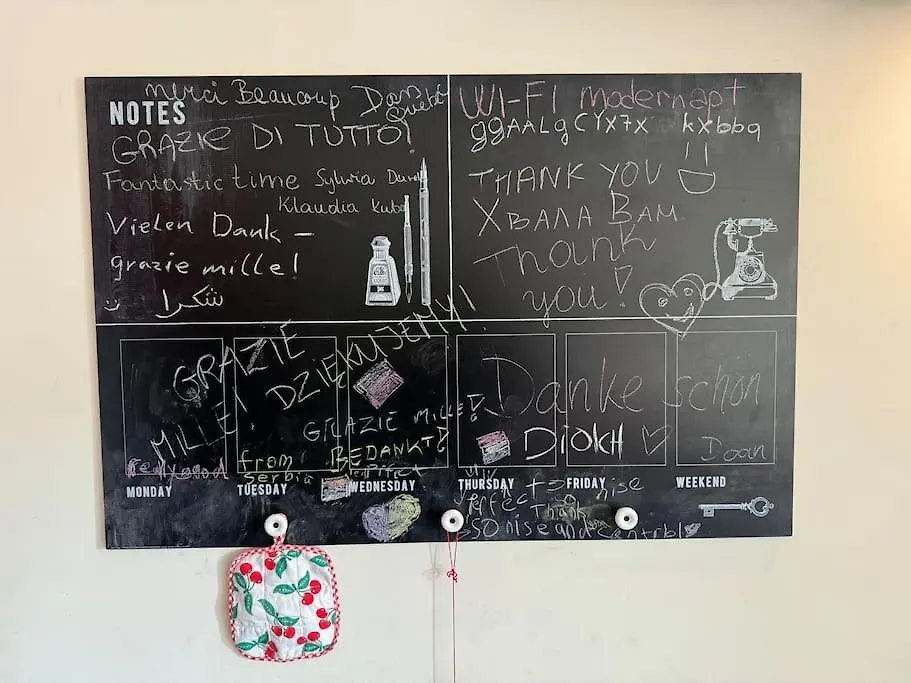 merci Beaucoup
NOTES
GRAZIE DI TUTTO!
Fantastic time Sylwia
Klaudia Kuba
Vielen Dank –
grazie mille!
شكرا
WI-FI modernapt
ggAALgCYX7X kxbbq
THANK YOU
ХВАЛА ВАМ
Thank
you!
GRAZIE
MILLE!
DZIĘKUJEMY!
GRAZIE MILLE!
BEDANKT!
from
Serbia
Really good
Danke schön
DIOKH
Ioan
MONDAY
TUESDAY
WEDNESDAY
THURSDAY
FRIDAY
WEEKEND
Perfect
Thank
SO nise and